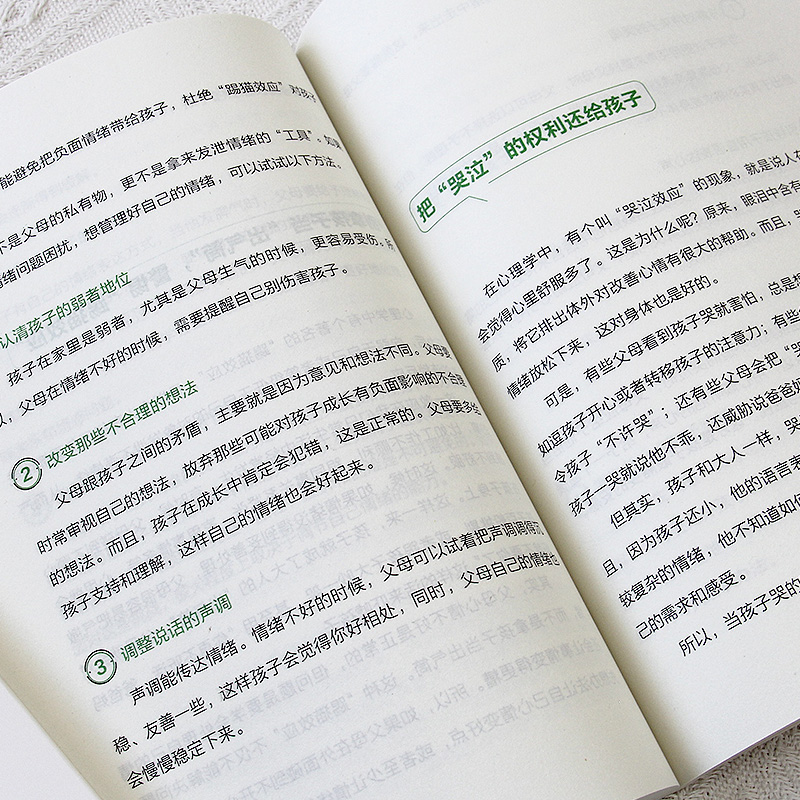 能避免把负面情绪带给孩子，杜绝“踢猫效应”对孩子
不是父母的私有物，更不是拿来发泄情绪的“工具”。如果
情绪问题困扰，想管理好自己的情绪，可以试试以下方法。
认清孩子的弱者地位
孩子在家里是弱者，尤其是父母生气的时候，更容易受伤。所
以，父母在情绪不好的时候，需要提醒自己别伤害孩子。
2 改变那些不合理的想法
父母跟孩子之间的矛盾，主要就是因为意见和想法不同。父母要
时常审视自己的想法，放弃那些可能对孩子成长有负面影响的不合理
的想法。而且，孩子在成长中肯定会犯错，这是正常的。父母要多给
孩子支持和理解，这样自己的情绪也会好起来。
3 调整说话的声调
声调能传达情绪。情绪不好的时候，父母可以试着把声调调得沉
稳、友善一些，这样孩子会觉得你好相处，同时，父母自己的情绪也
会慢慢稳定下来。
把“哭泣”的权利还给孩子
在心理学中，有个叫“哭泣效应”的现象，就是说人在
会觉得心里舒服多了。这是为什么呢？原来，眼泪中含有
质，将它排出体外对改善心情有很大的帮助。而且，哭
情绪放松下来，这对身体也是好的。
可是，有些父母看到孩子哭就害怕，总是想
如逗孩子开心或者转移孩子的注意力；有些
令孩子“不许哭”；还有些父母会把“哭
孩子一哭就说他不乖，还威胁说爸爸妈
但其实，孩子和大人一样，哭
且，因为孩子还小，他的语言表
较复杂的情绪，他不知道如何
己的需求和感受。
所以，当孩子哭的